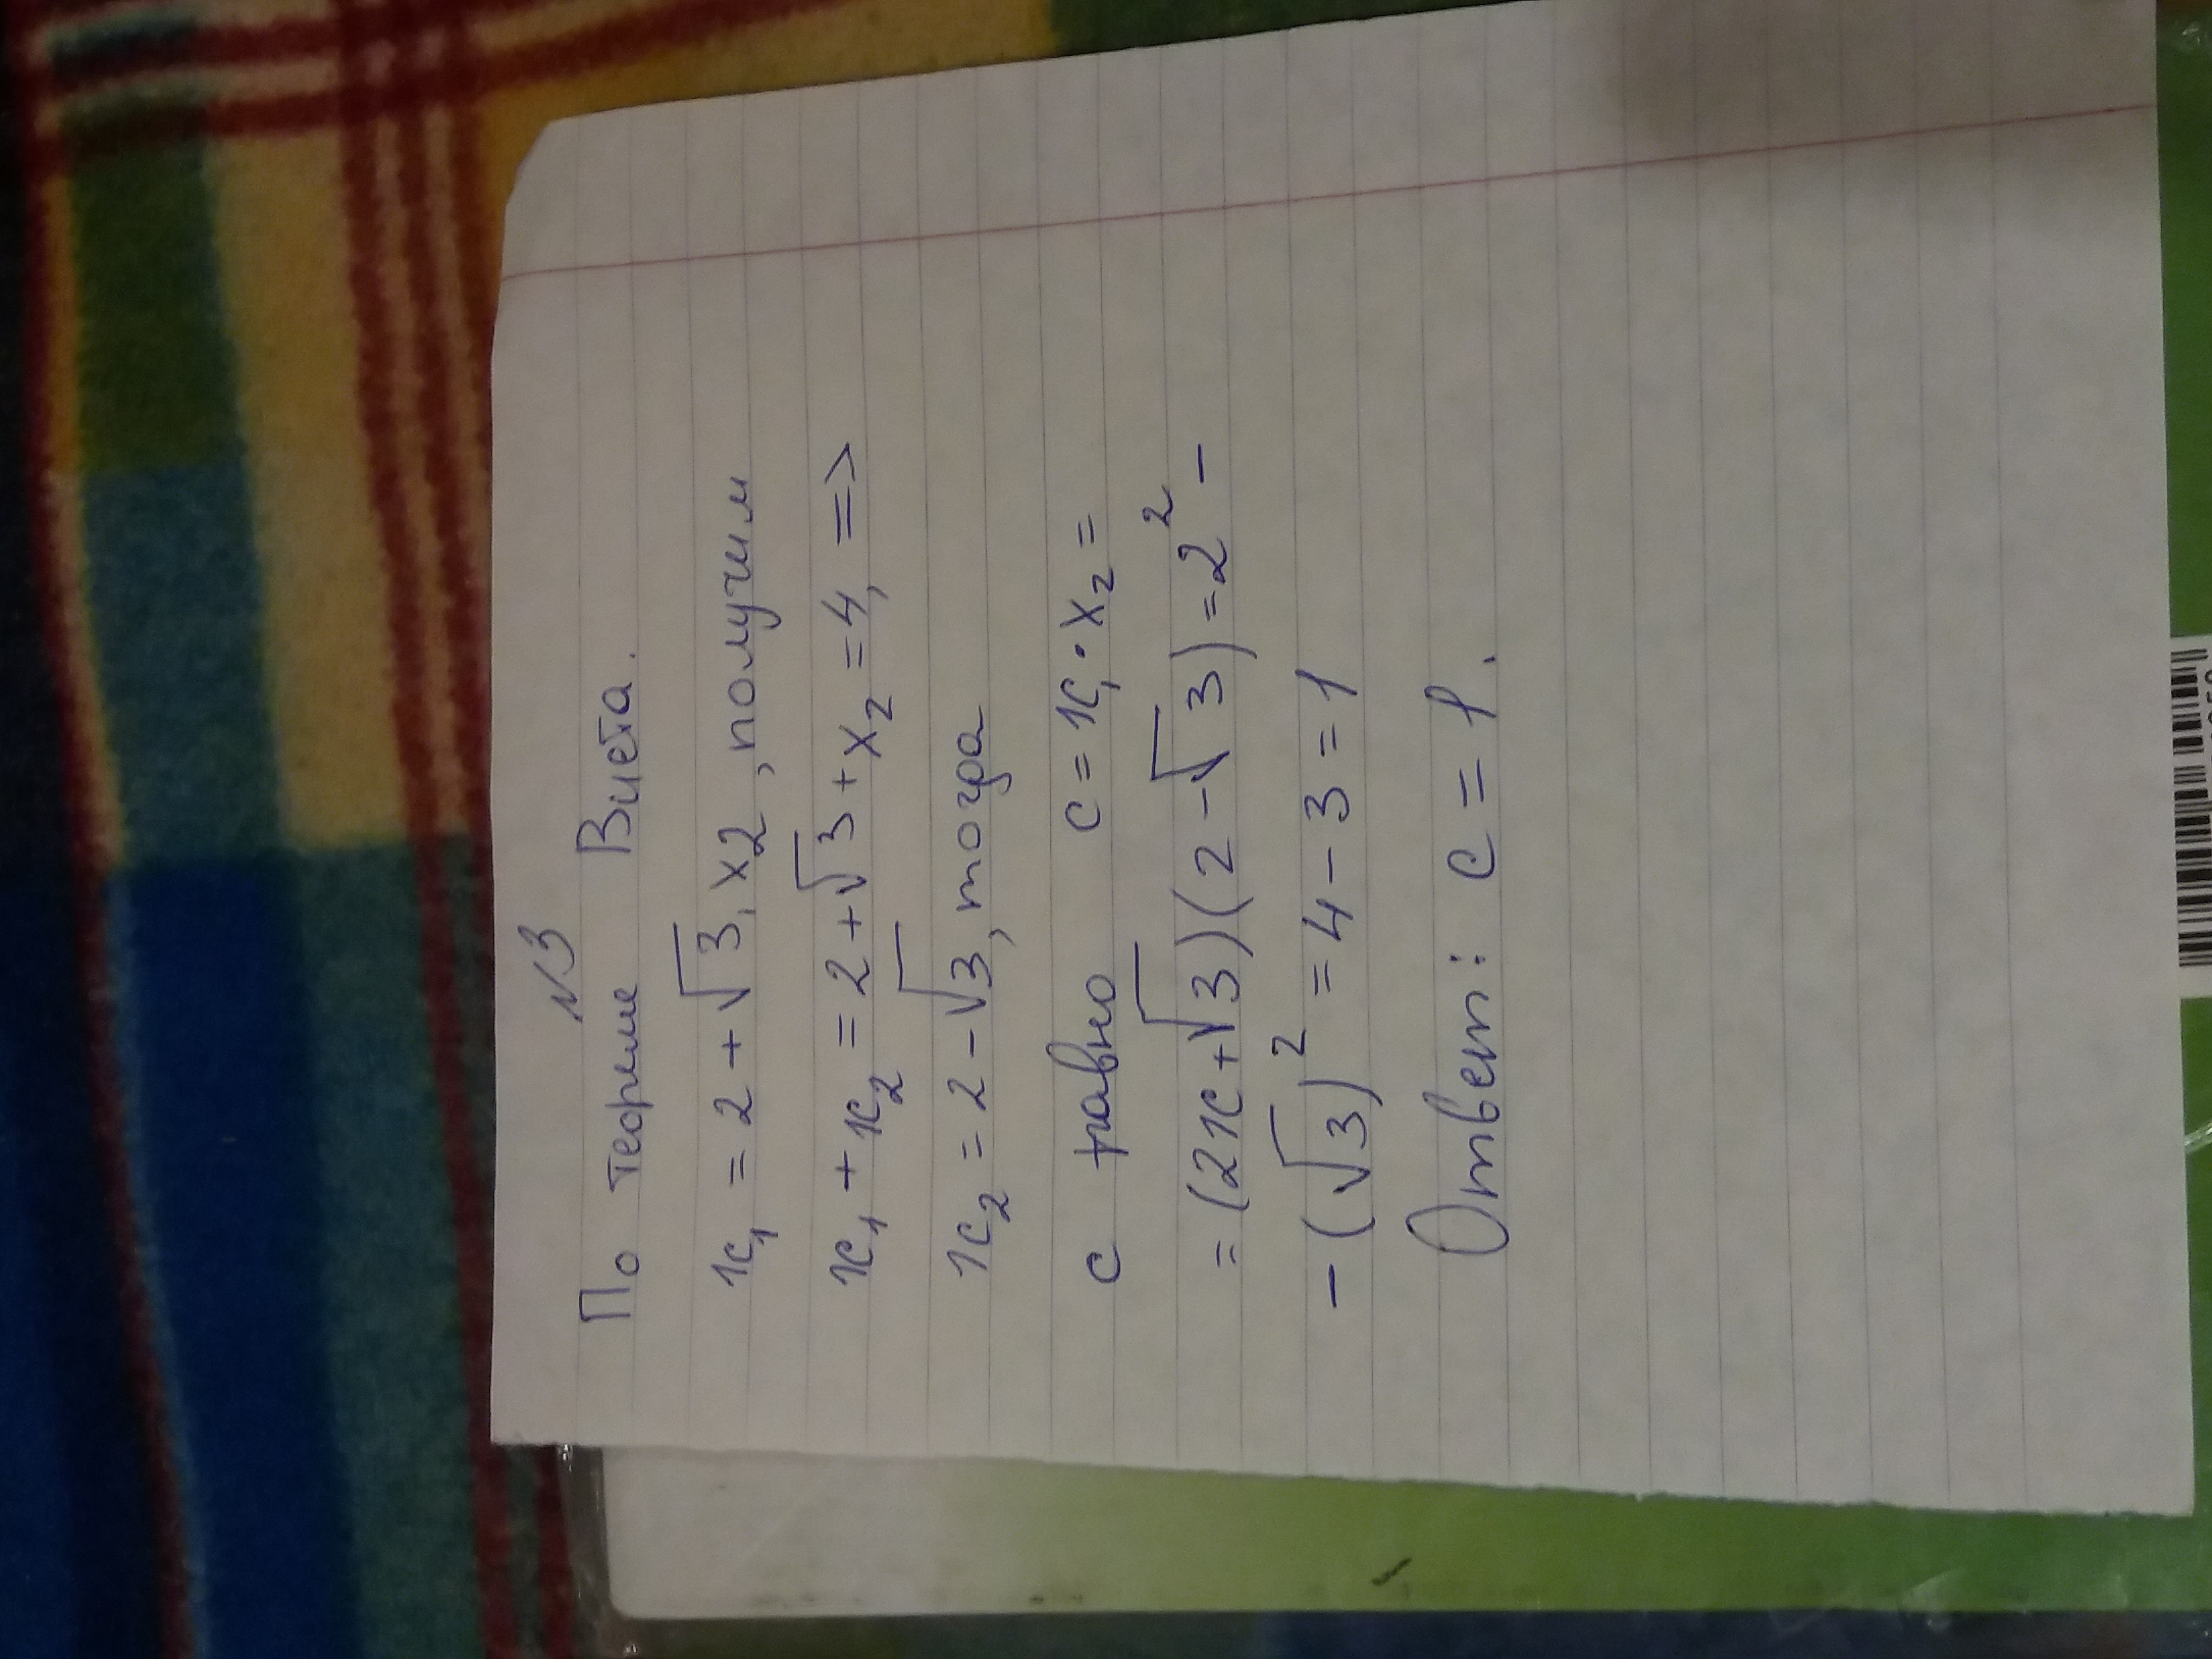 №3
По теореме Виета.
x₁ = 2 + √3, x2, получим
x₁ + x₂ = 2 + √3 + x₂ = 4, =>
x₂ = 2 - √3, тогда
c равно c = x₁ · x₂ =
= (2x + √3)(2 - √3) = 2² -
- (√3)² = 4 - 3 = 1
Ответ: c = 1.